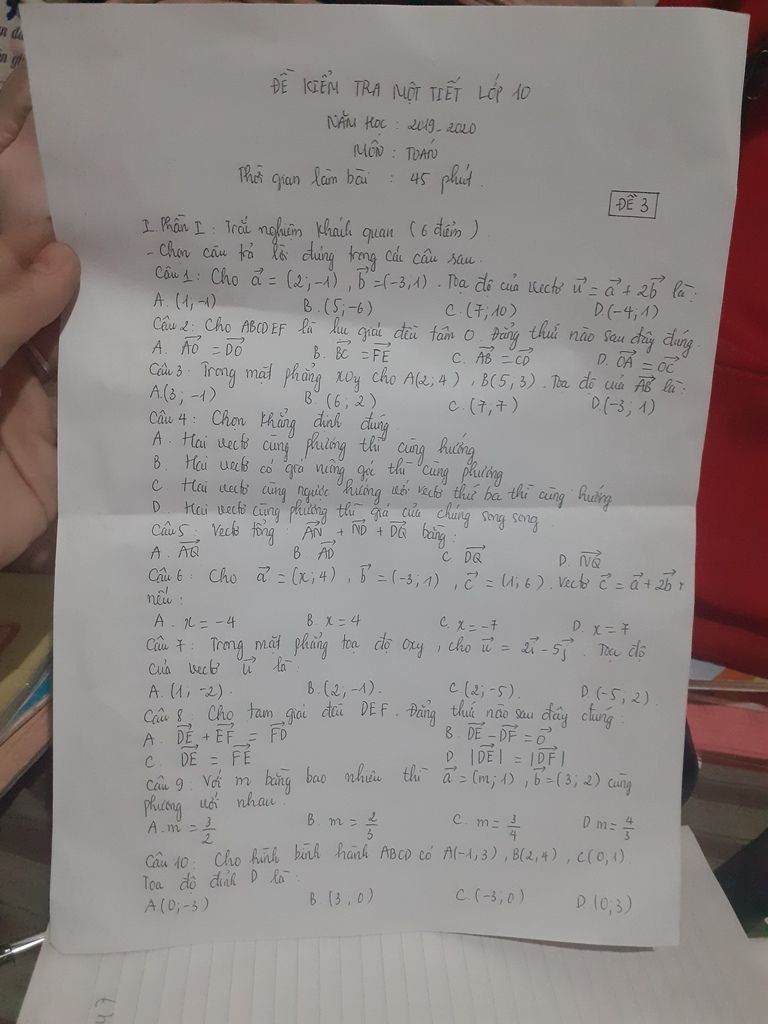 ĐỀ KIỂM TRA MỘT TIẾT LỚP 10
NĂM HỌC : 2019-2020
MÔN : TOÁN
Thời gian làm bài : 45 phút.
ĐỀ 3
I. Phần I : Trắc nghiệm khách quan (6 điểm)
- Chọn câu trả lời đúng trong các câu sau.
Câu 1 : Cho a⃗ = (2;-1), b⃗ = (-3;1). Tọa độ của vectơ u⃗ = a⃗ + 2b⃗ là :
A. (1;-1) B. (5;-6) C. (7;10) D. (-4;1)
Câu 2 : Cho ABCDEF là lục giác đều tâm O. Đẳng thức nào sau đây đúng.
A. AO⃗ = DO⃗ B. BC⃗ = FE⃗ C. AB⃗ = CD⃗ D. OA⃗ = OC⃗
Câu 3 : Trong mặt phẳng xOy cho A(2;4), B(5;3). Tọa độ của AB⃗ là :
A. (3;-1) B. (6;2) C. (7;7) D. (-3;1)
Câu 4 : Chọn khẳng định đúng
A. Hai vectơ cùng phương thì cùng hướng
B. Hai vectơ có giá vuông góc thì cùng phương
C. Hai vectơ cùng ngược hướng với vectơ thứ ba thì cùng hướng
D. Hai vectơ cùng phương thì giá của chúng song song.
Câu 5 : Vectơ tổng : AN⃗ + ND⃗ + DQ⃗ bằng :
A. AQ⃗ B. AD⃗ C. DQ⃗ D. NQ⃗
Câu 6 : Cho a⃗ = (x;4), b⃗ = (-3;1), c⃗ = (1;6). Vectơ c⃗ = a⃗ + 2b⃗
nếu :
A. x = -4 B. x = 4 C. x = -7 D. x = 7
Câu 7 : Trong mặt phẳng tọa độ Oxy, cho u⃗ = 2i⃗ - 5j⃗. Tọa độ
của vectơ u⃗ là :
A. (1,-2). B. (2;-1). C. (2;-5). D. (-5,2).
Câu 8 : Cho tam giác đều DEF. Đẳng thức nào sau đây đúng :
A. DE⃗ + EF⃗ = FD⃗ B. DE⃗ - DF⃗ = 0⃗
C. DE⃗ = FE⃗ D. |DE⃗| = |DF⃗|
Câu 9 : Với m bằng bao nhiêu thì a⃗ = (m;1), b⃗ = (3;2) cùng
phương với nhau.
A. m = 3/2 B. m = 2/3 C. m = 3/4 D m = 4/3
Câu 10 : Cho hình bình hành ABCD có A(-1,3), B(2,4), C(0,1).
Tọa độ đỉnh D là :
A (0;-3) B. (3;0) C. (-3;0) D. (0;3)